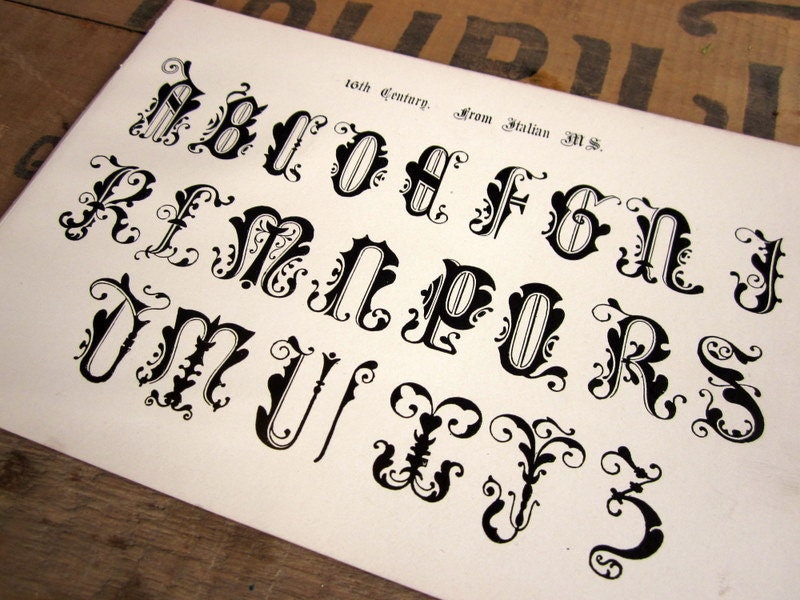 16th Century. From Italian MS.
A B C D E F G H I
K L M N P Q R S
T M U X Y Z